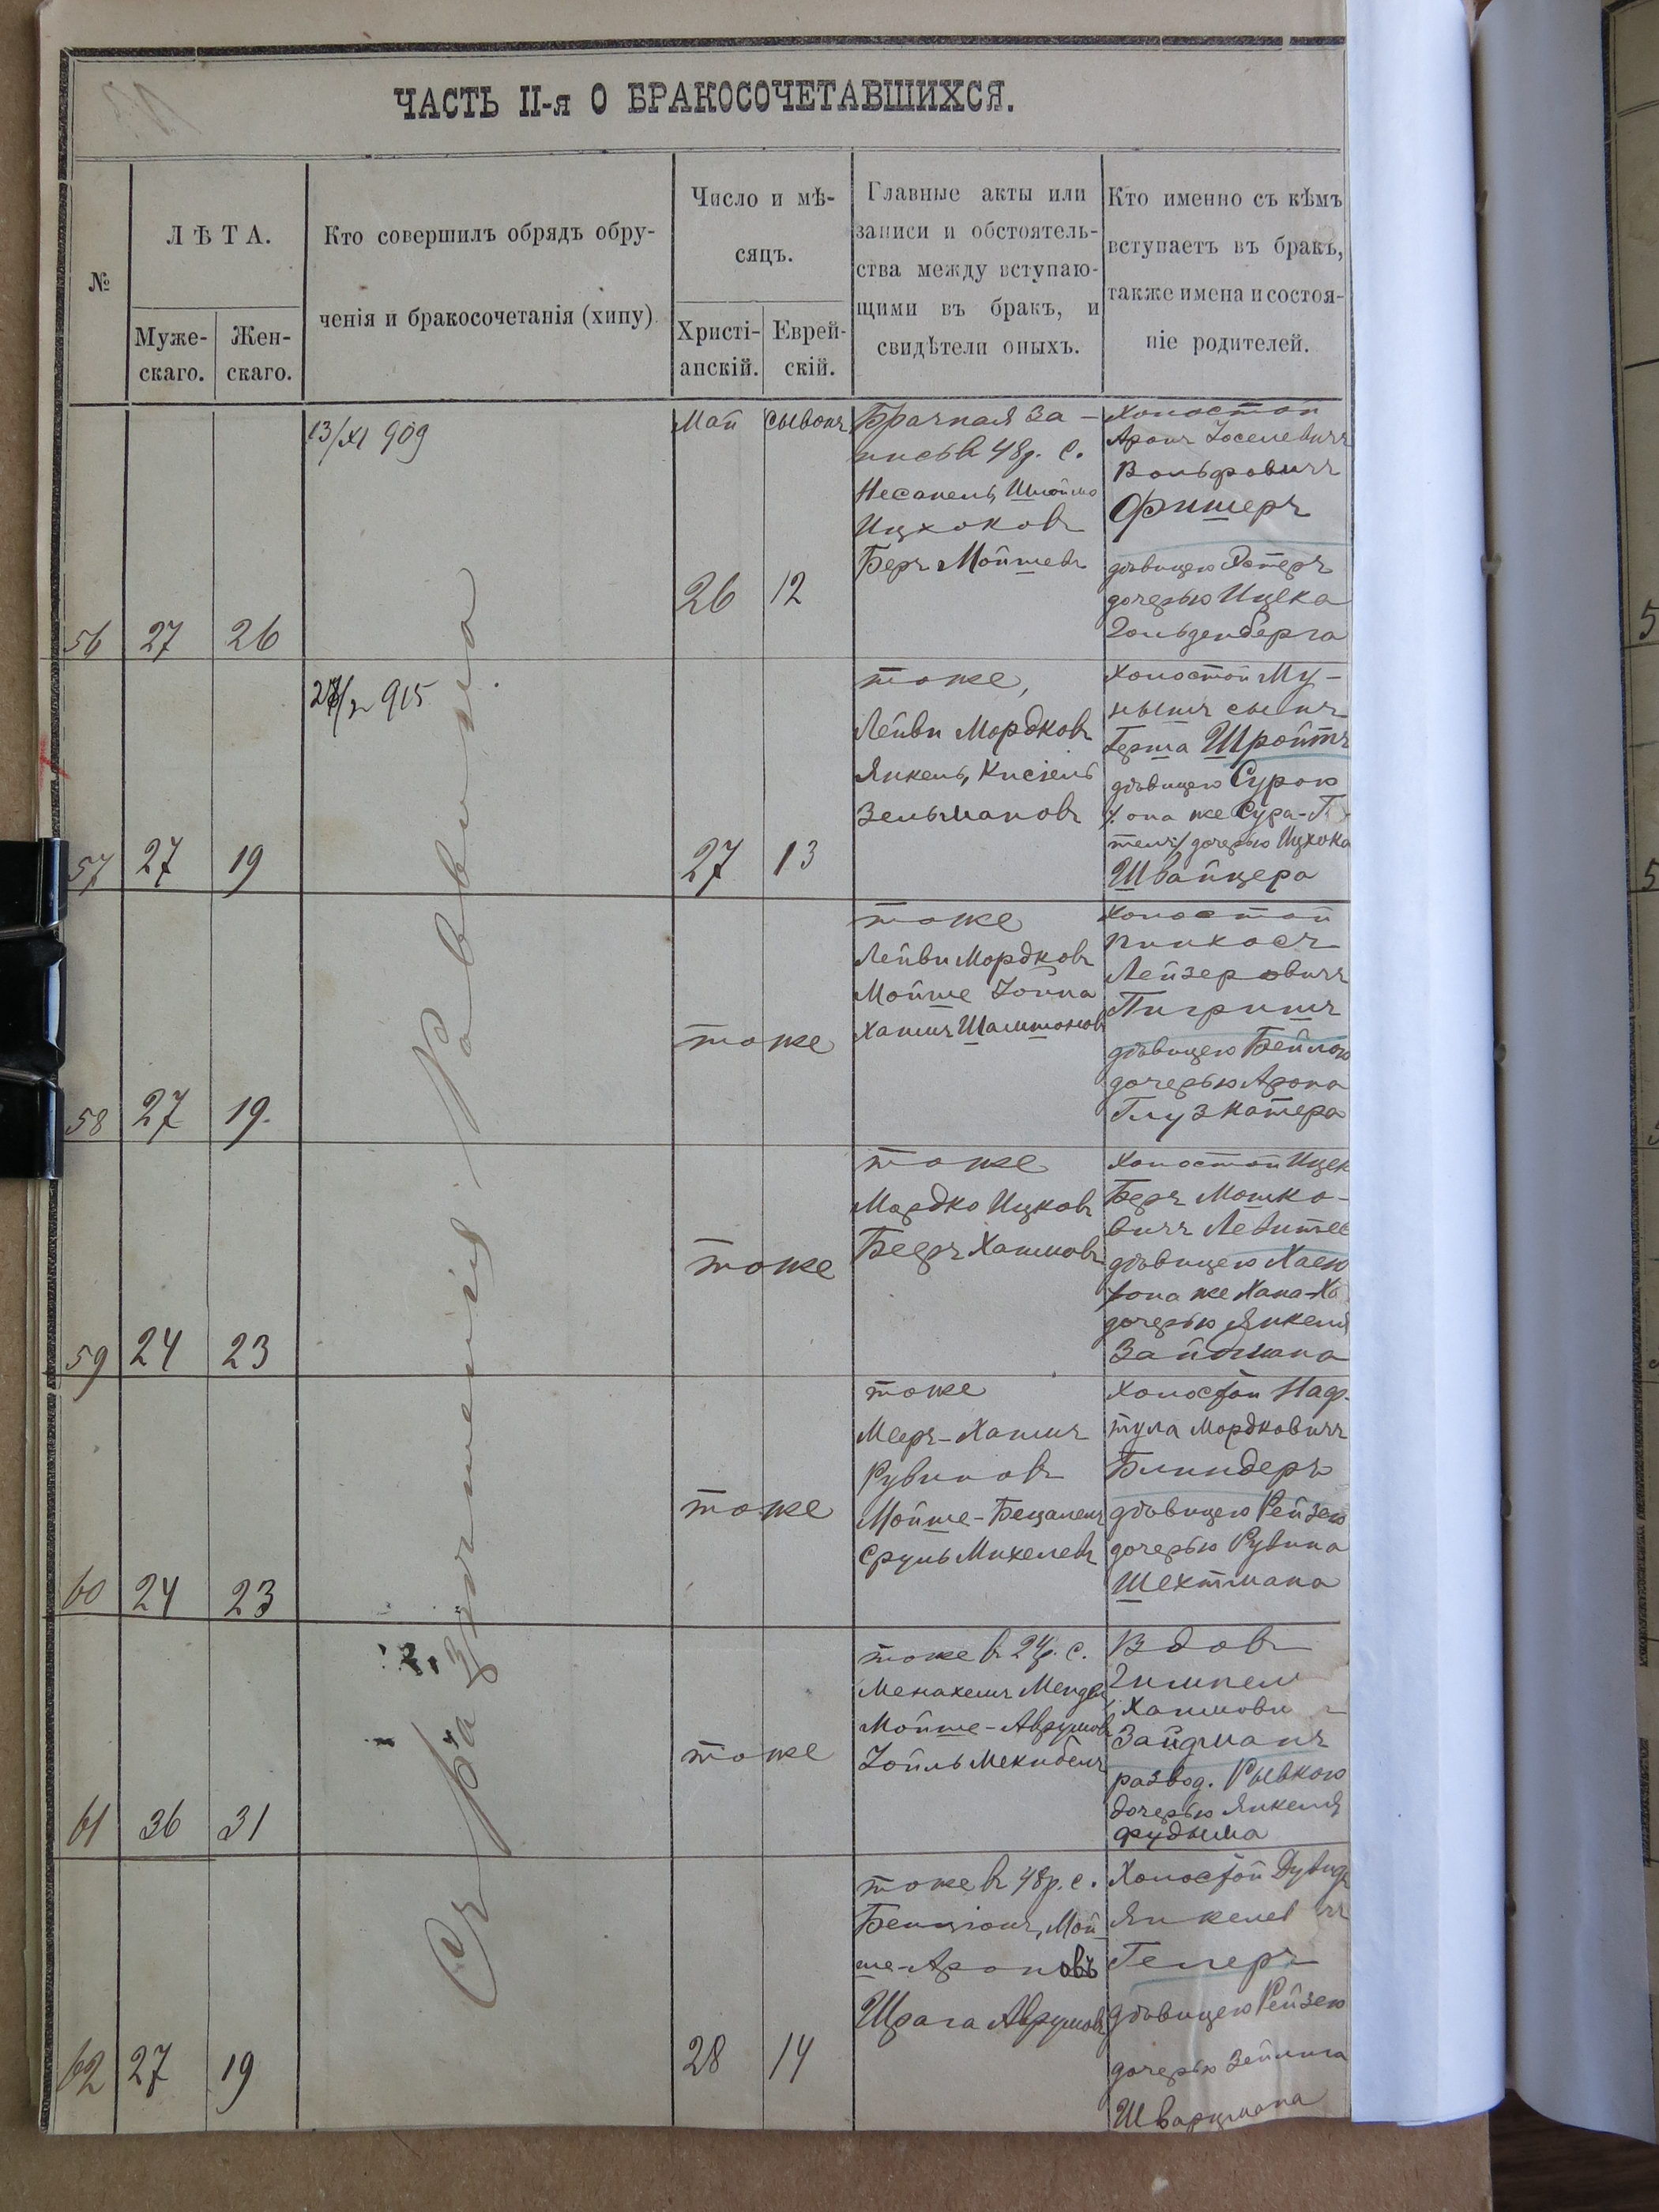 ЧАСТЬ II-я О БРАКОСОЧЕТАВШИХСЯ.
№
ЛѢТА.
Муже-
скаго.
Жен-
скаго.
Кто совершилъ обрядъ обру-
ченія и бракосочетанія (хипу)
Число и мѣ-
сяцъ.
Христі-
анскій.
Еврей-
скій.
Главные акты или
записи и обстоятель-
ства между вступаю-
щими въ бракъ, и
свидѣтели оныхъ.
Кто именно съ кѣмъ
вступаетъ въ бракъ,
также имена и состоя-
ніе родителей.
Съ разрѣшенія Раввина
56
27
26
13/XI 909
Май
Сывонъ
26
12
Брачная за-
пись в 48р. с.
Несанель, Шлоймо
Ицхоковъ
Беръ Мойшевъ
Холостой
Аронъ Іоселевичъ
Вольфовичъ
Фишеръ
дѣвицею Эстеръ
дочерью Ицека
Гольденберга
57
27
19
915
27
13
тоже,
Лейви Мордковъ
Янкель, Кисіель
Зельмановъ
Холостой Му-
нышъ сынъ
Герша Шройтъ
дѣвицею Сурою
/. она же Сура-
дочерью Ицхока
Швайцера
58
27
19.
тоже
тоже
Лейви Мордковъ
Мойше Іойна
Хаимъ
Холостой
Пинхосъ
Лейзеровичъ
Пигришъ
дѣвицею Бейлою
дочерью Арона
Глузкатера
59
24
23
тоже
тоже
Мордко Ицковъ
Беръ Хаимовъ
Холостой Ицек
Беръ Мошко-
вичъ Левитес
дѣвицею Хаею
/она же Хана-Ха
дочерью Янкеля
Зайдмана
60
24
23
тоже
тоже
Меер-Хаимъ
Рувиновъ
Мойше-Бецалель
Сруль Михелевъ
Холостой Наф-
тула Мордковичъ
Блиндеръ
дѣвицею Рейзею
дочерью Рувина
Шехтмана
61
36
31
тоже
тоже в 24р. с.
Менахемъ Мендель
Мойше-Аврумовъ
Іойль
Вдов
Гимпель
Хаимови ъ
Зайдманъ
развод. Рывкою
дочерью Янкеля
Фудыма
62
27
19
28
14
тоже в 48р. с.
Бенціонъ, Мой
ше-Ароновъ
Шрага Аврумовъ
Холостой Дувидъ
Янкелев чъ
Гелеръ
дѣвицею Рейзею
дочерью Зейлига
Шварцмана